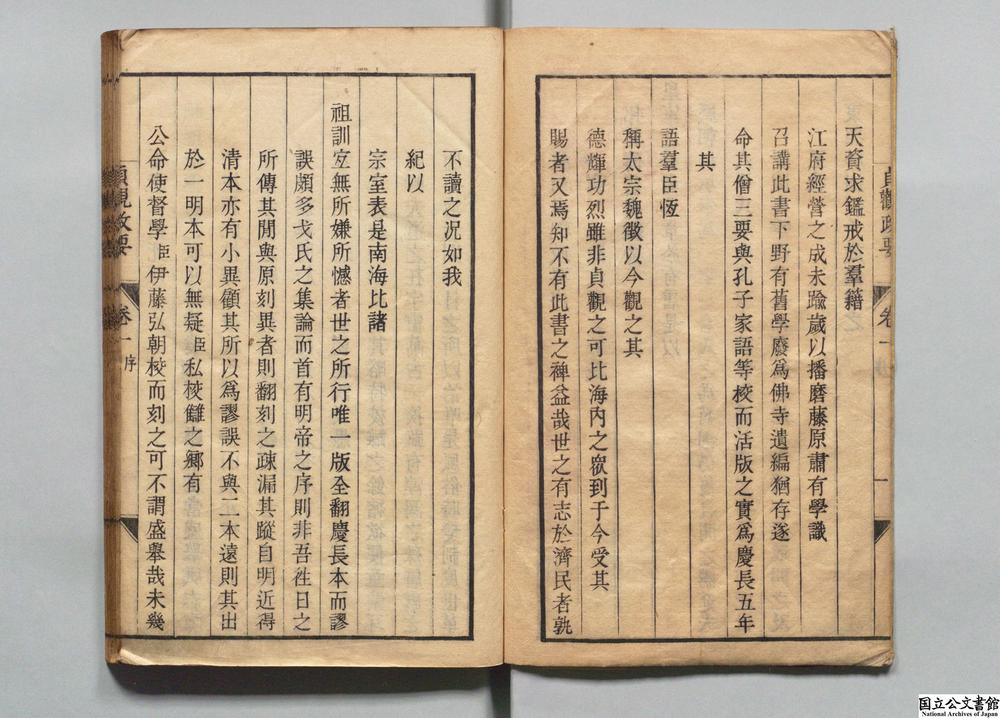 貞觀政要
卷一
一
天資求鑑戒於羣籍
江府經營之成未踰歲以播磨藤原肅有學識
召講此書下野有舊學廢爲佛寺遺編猶存遂
命其僧三要與孔子家語等校而活版之實爲慶長五年
其
語羣臣恆
稱太宗魏徵以今觀之其
德輝功烈雖非貞觀之可比海內之寧到于今受其
賜者又焉知不有此書之裨益哉世之有志於濟民者孰
不讀之況如我
紀以
宗室表是南海比諸
祖訓宜無所嫌所憾者世之所行唯一版全翻慶長本而謬
誤頗多戈氏之集論而首有明帝之序則非吾往日之
所傳其閒與原刻異者則翻刻之疎漏其蹤自明近得
淸本亦有小異顧其所以爲謬誤不與二本遠則其出
於一明本可以無疑臣私校讎之鄉有
公命使督學臣伊藤弘朝校而刻之可不謂盛舉哉未幾
貞觀政要
卷一
序
国立公文書館
National Archives of Japan